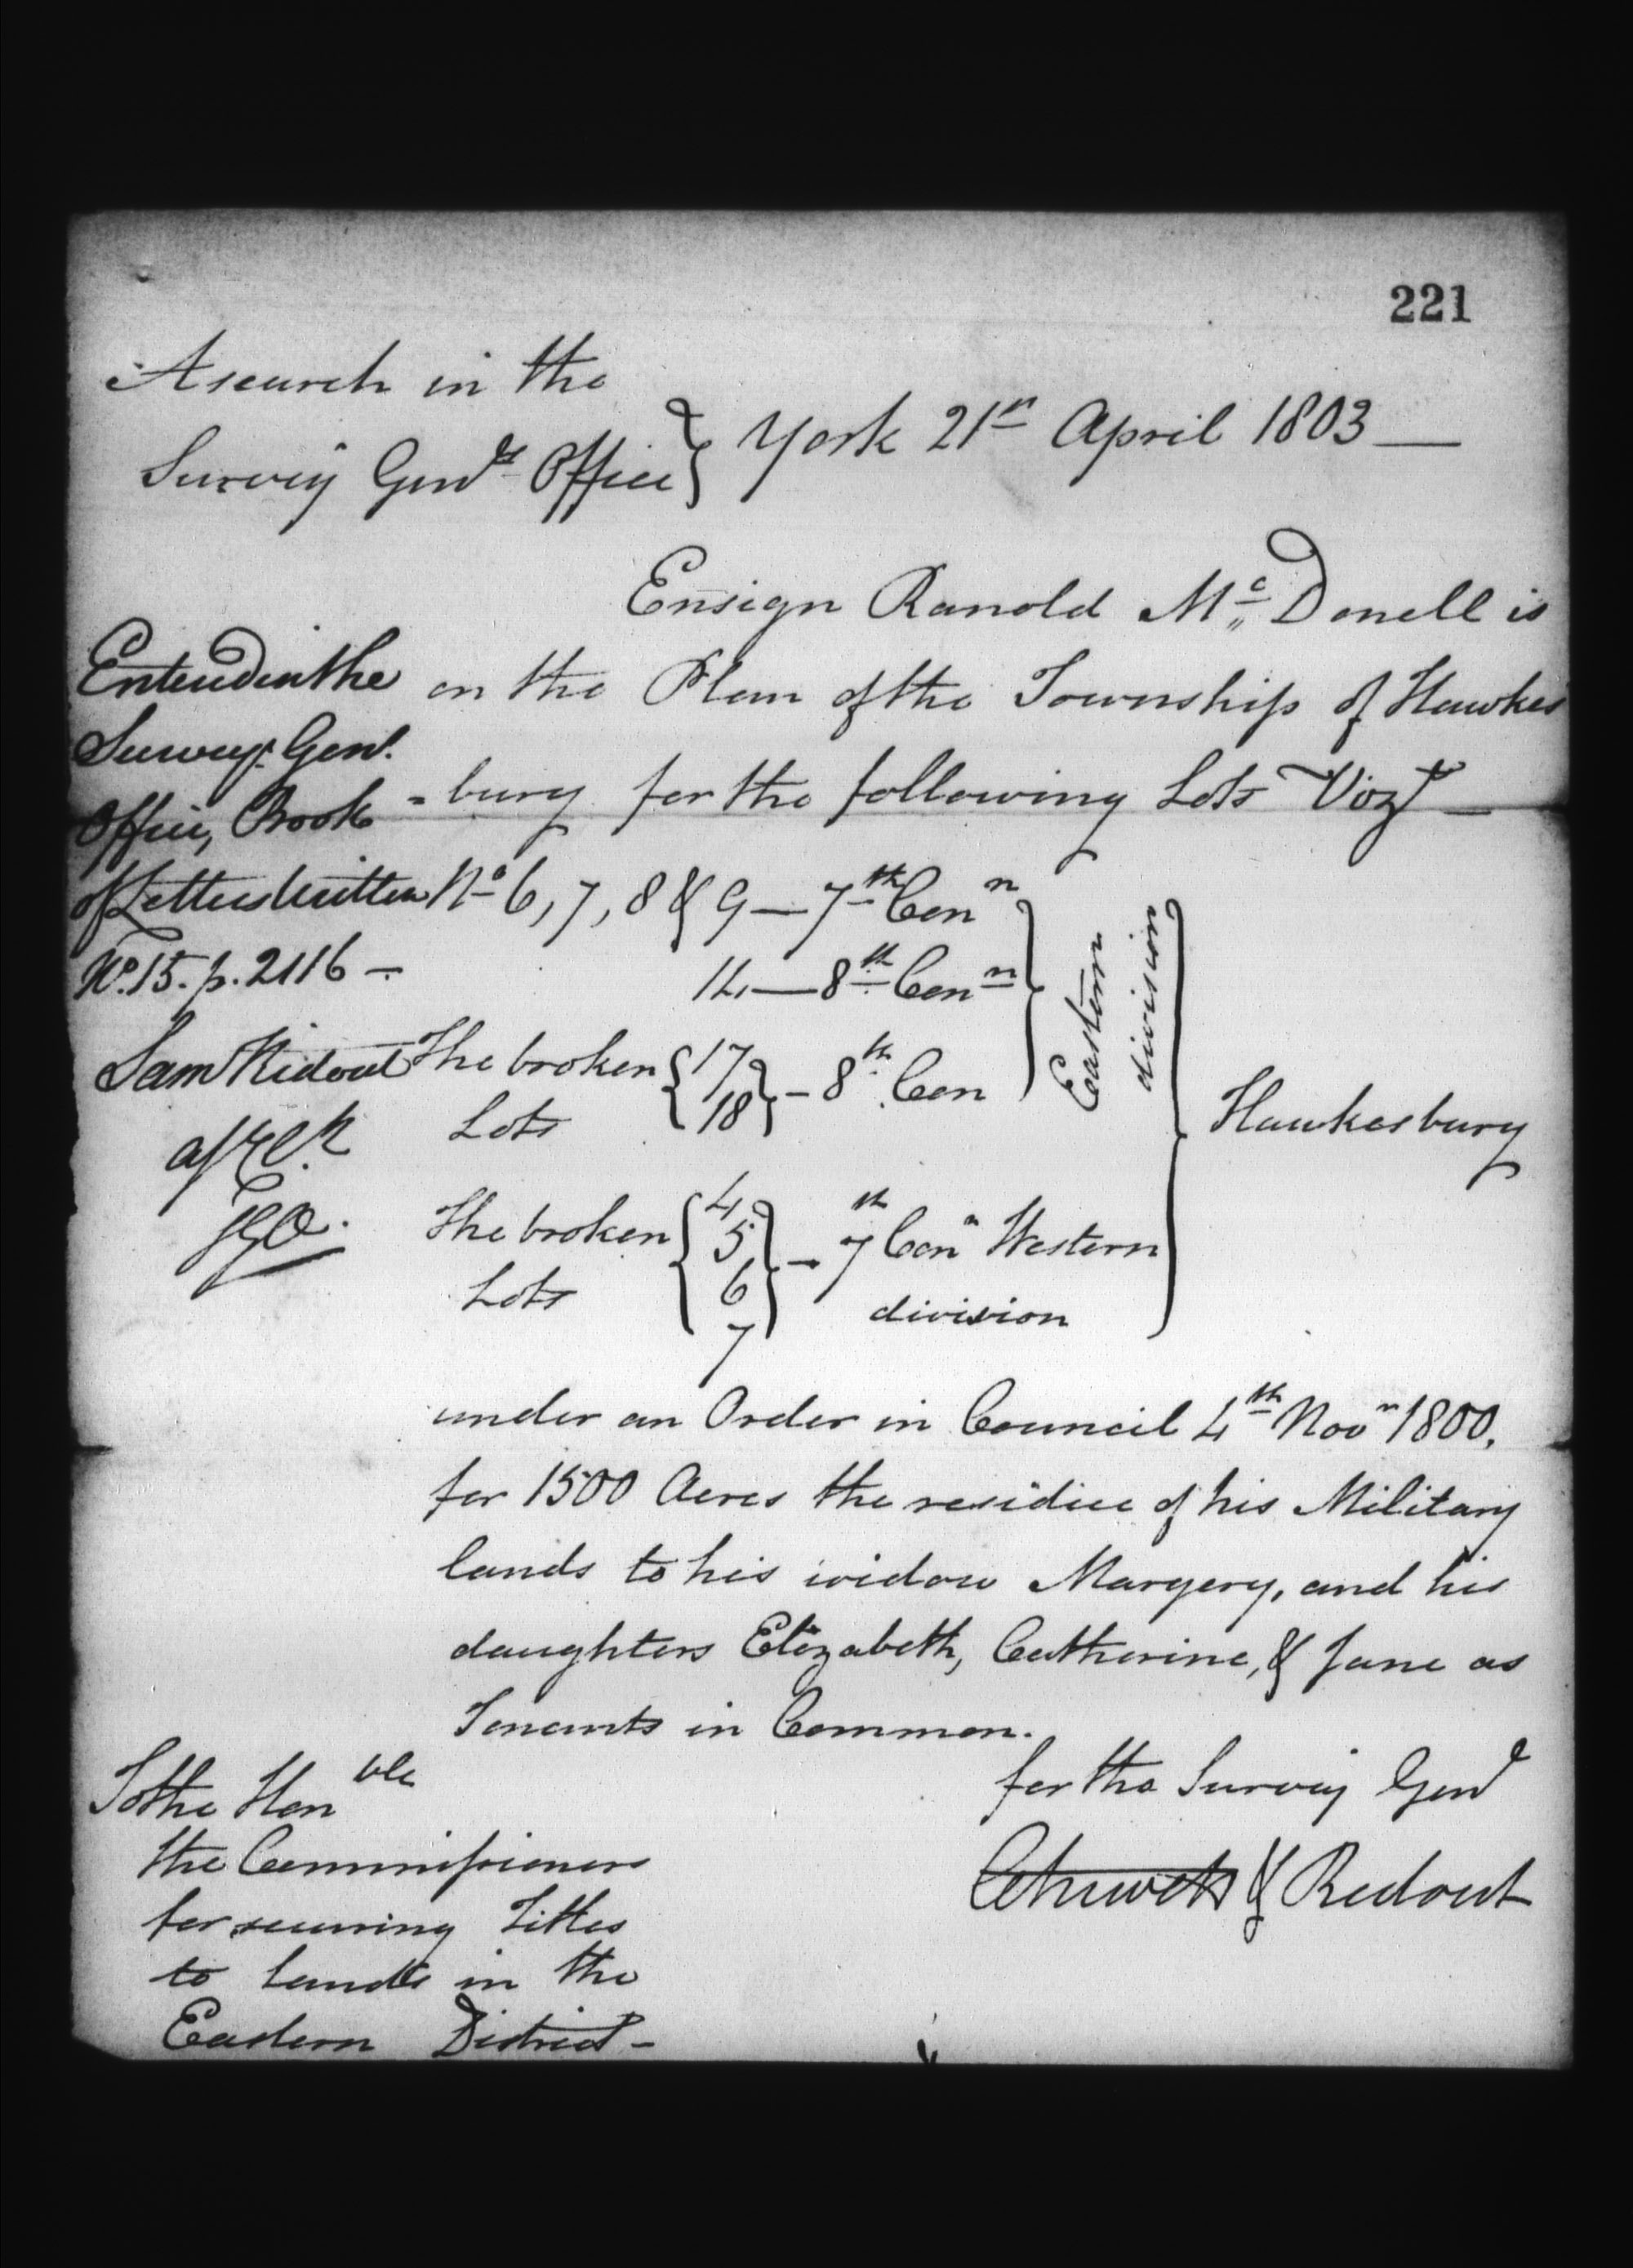 221
A search in the
Survey Genls Office } York 21st April 1803 —
Ensign Ranold Mc Donell is
on the Plan of the Township of Hawkes
=bury for the following Lots Vizt —
No 6, 7, 8 & 9 — 7th Conn
14 — 8th Conn
The broken Lots { 17 18 } - 8th Con
Eastern division
The broken Lots { 4 5 6 7 } - 7th Conn Western division
Hawkesbury
under an Order in Council 4th Novr 1800.
for 1500 Acres the residue of his Military
lands to his widow Margery, and his
daughters Elizabeth, Catherine, & Jane as
Tenants in Common.
for the Survey Genl
& Ridout
Entered in the
Survey. Genl.
Office, Book
of Letters Written
No. 15. p. 2116 —
Sam Ridout
To the Honble
the Commissioners
for securing Titles
to Lands in the
Eastern District -